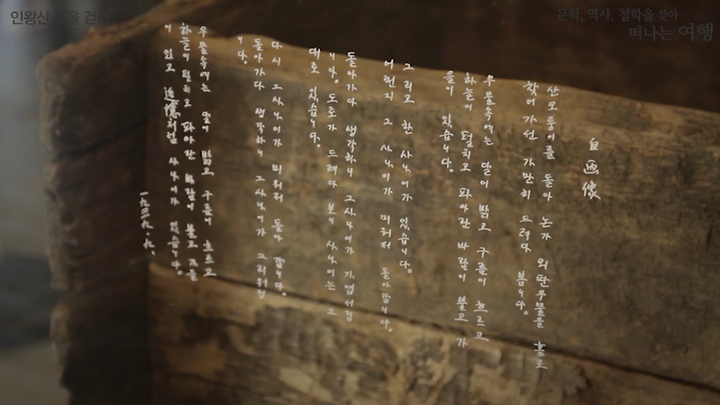 인왕산
문학, 역사, 철학을 찾아
떠나는 여행
自画像
산모퉁이를 돌아 논가 외딴우물을 홀로
찾어가선 가만히 드려다 봅니다.
우물속에는 달이 밝고 구름이 흐르고
하늘이 펼치고 파아란 바람이 불고 가
을이 있습니다.
그리고 한 사나이가 있습니다.
어쩐지 그 사나이가 미워저 돌아갑니다.
돌아가다 생각하니 그사나이가 가엽서집
니다. 도로가 드려다 보니 사나이는 그
대로 있습니다.
다시 그사나이가 미워저 돌아 갑니다.
돌아가다 생각하니 그사나이가 그리워집
니다.
우물속에는 달이 밝고 구름이 흐르고
하늘이 펼치고 파아란 바람이 불고 가을
이 있고 追憶처럼 사나이가 있습니다.
一九三九、九.